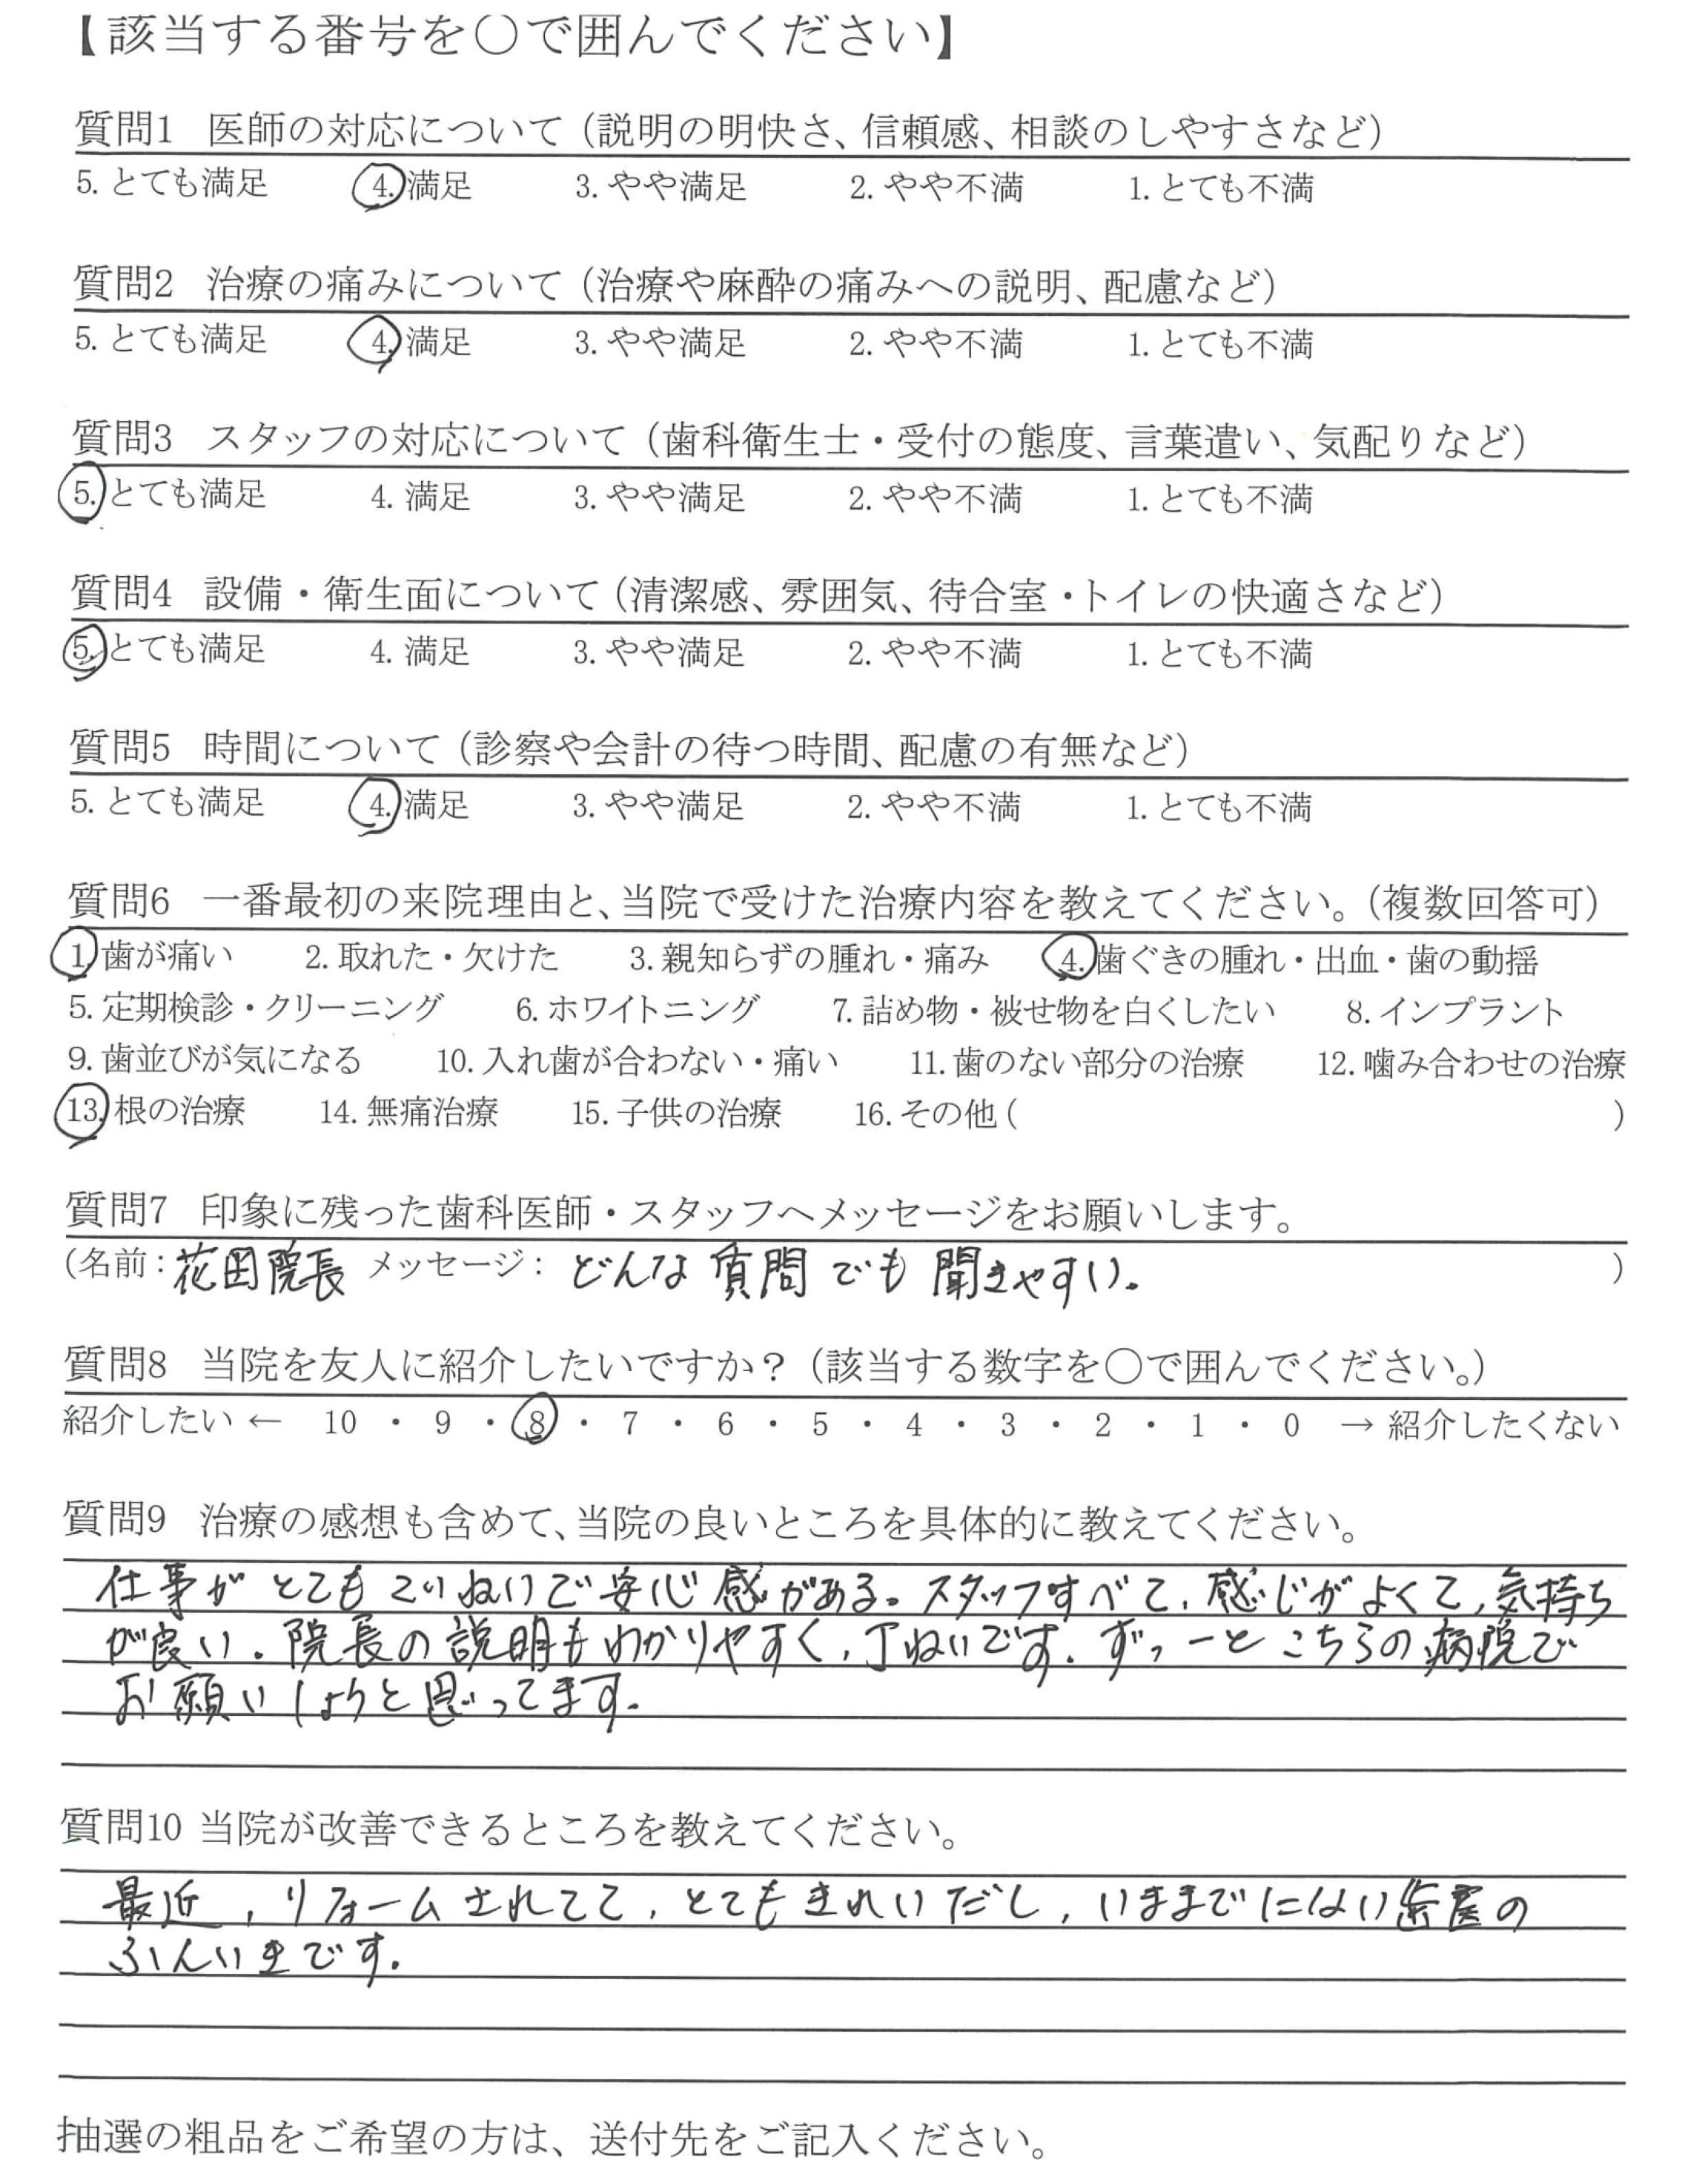 【該当する番号を〇で囲んでください】
質問1 医師の対応について（説明の明快さ、信頼感、相談のしやすさなど）
5. とても満足 4. 満足 3. やや満足 2. やや不満 1. とても不満
質問2 治療の痛みについて（治療や麻酔の痛みへの説明、配慮など）
5. とても満足 4. 満足 3. やや満足 2. やや不満 1. とても不満
質問3 スタッフの対応について（歯科衛生士・受付の態度、言葉遣い、気配りなど）
5. とても満足 4. 満足 3. やや満足 2. やや不満 1. とても不満
質問4 設備・衛生面について（清潔感、雰囲気、待合室・トイレの快適さなど）
5. とても満足 4. 満足 3. やや満足 2. やや不満 1. とても不満
質問5 時間について（診察や会計の待つ時間、配慮の有無など）
5. とても満足 4. 満足 3. やや満足 2. やや不満 1. とても不満
質問6 一番最初の来院理由と、当院で受けた治療内容を教えてください。（複数回答可）
1. 歯が痛い 2. 取れた・欠けた 3. 親知らずの腫れ・痛み 4. 歯ぐきの腫れ・出血・歯の動揺
5. 定期検診・クリーニング 6. ホワイトニング 7. 詰め物・被せ物を白くしたい 8. インプラント
9. 歯並びが気になる 10. 入れ歯が合わない・痛い 11. 歯のない部分の治療 12. 噛み合わせの治療
13. 根の治療 14. 無痛治療 15. 子供の治療 16. その他（ ）
質問7 印象に残った歯科医師・スタッフへメッセージをお願いします。
（名前：花田院長 メッセージ：どんな質問でも聞きやすい。）
質問8 当院を友人に紹介したいですか？（該当する数字を〇で囲んでください。）
紹介したい ← 10 ・ 9 ・ 8 ・ 7 ・ 6 ・ 5 ・ 4 ・ 3 ・ 2 ・ 1 ・ 0 → 紹介したくない
質問9 治療の感想も含めて、当院の良いところを具体的に教えてください。
仕事がとてもていねいで安心感がある。スタッフすべて、感じがよくて、気持ち
が良い。院長の説明もわかりやすく、丁ねいです。ずっーとこちらの病院で
お願いしようと思ってます。
質問10 当院が改善できるところを教えてください。
最近、リフォームされてて、とてもきれいだし、いままでにはない歯医の
ふんいきです。
抽選の粗品をご希望の方は、送付先をご記入ください。